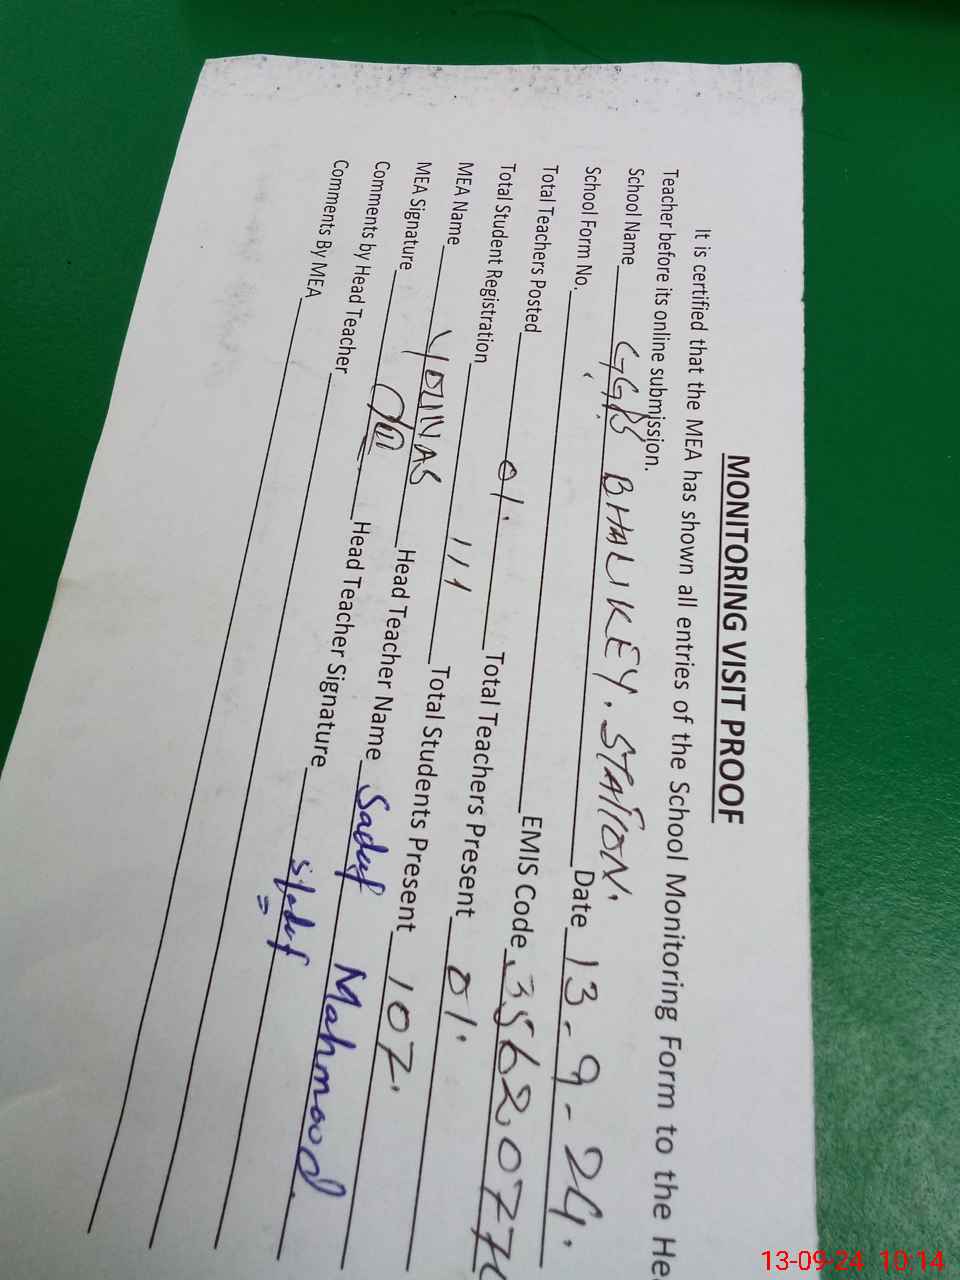 MONITORING VISIT PROOF
It is certified that the MEA has shown all entries of the School Monitoring Form to the He
Teacher before its online submission.
School Name GGPS BHALIKEY. STATION.
School Form No. Date 13-9-24.
Total Teachers Posted EMIS Code 3562077
Total Student Registration 01. Total Teachers Present 01.
MEA Name 111 Total Students Present 107.
MEA Signature YOUNAS Head Teacher Name Sadaf Mahmood
Comments by Head Teacher Head Teacher Signature Sadaf
Comments By MEA
13-09-24 10:14